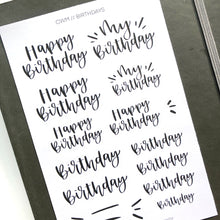 CWM // BIRTHDAYS
Happy Birthday
My Birthday
Happy Birthday
My Birthday
Happy Birthday
Happy Birthday
Birthday
Birthday
Birthday
Birthday
Birthday